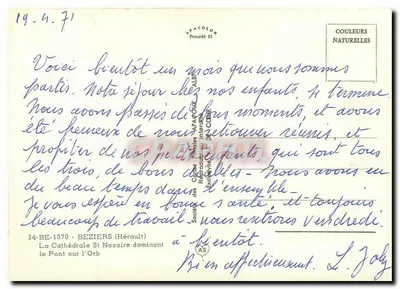 19.4.71
APACOLOR
Procédé 81
COULEURS
NATURELLES
Voici bientôt un mois que nous sommes
partis. Notre séjour chez nos enfants, se termine.
Nous avons passés de bons moments, et avons
été heureux de nous retrouver réunis, et
profiter de nos petits enfants, qui sont tous
les trois, de bons diables - Nous avons eu
du beau temps dans l'ensemble -
Je vous espère en bonne santé, et toujours
beaucoup de travail. nous rentrons vendredi
34-BE-1070 - BEZIERS (Hérault)
La Cathédrale St Nazaire dominant
le Pont sur l'Orb
à bientôt.
Bien affectueusement. L. Joly
AS